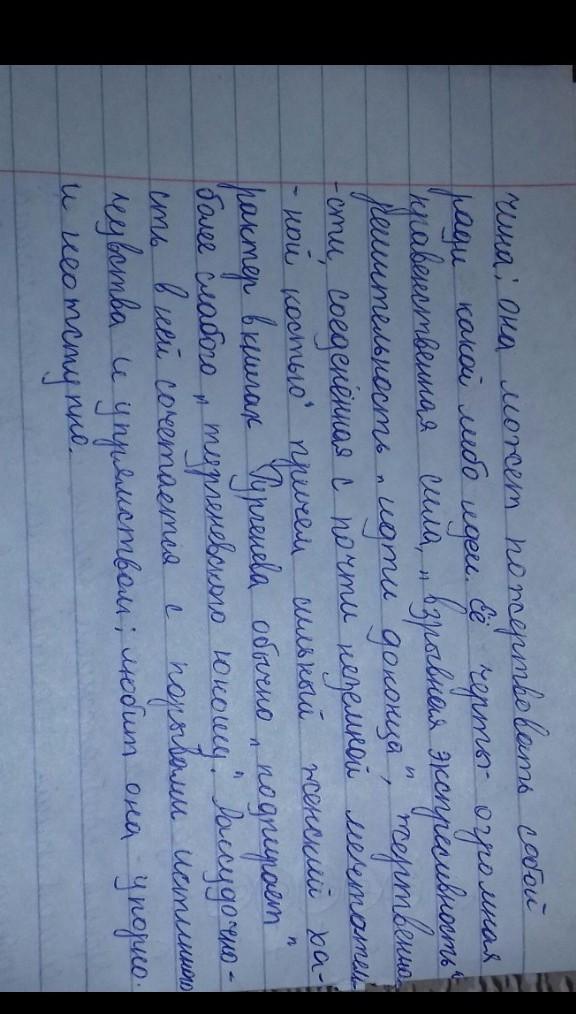 чина; она может пожертвовать собой
ради какой либо идеи. Её черты- огромная
нравственная сила, „взрывная экспрессивность",
решительность „идти доконца", жертвенно-
-сти, соединённая с почти неземной мечтатель-
-ной костью" причем сильный женский ха-
рактер в книгах Тургенева обычно „подпирает"
более слабого „тургеневского юношу". Рассудочно-
сть в ней сочетается с порывами истинного
чувства и упрямством; любит она упорно.
и неотступно.